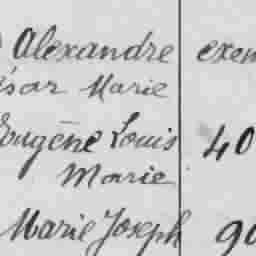 Alexandre exem
ésar Marie
Eugène Louis 40
Marie
Marie Joseph 90